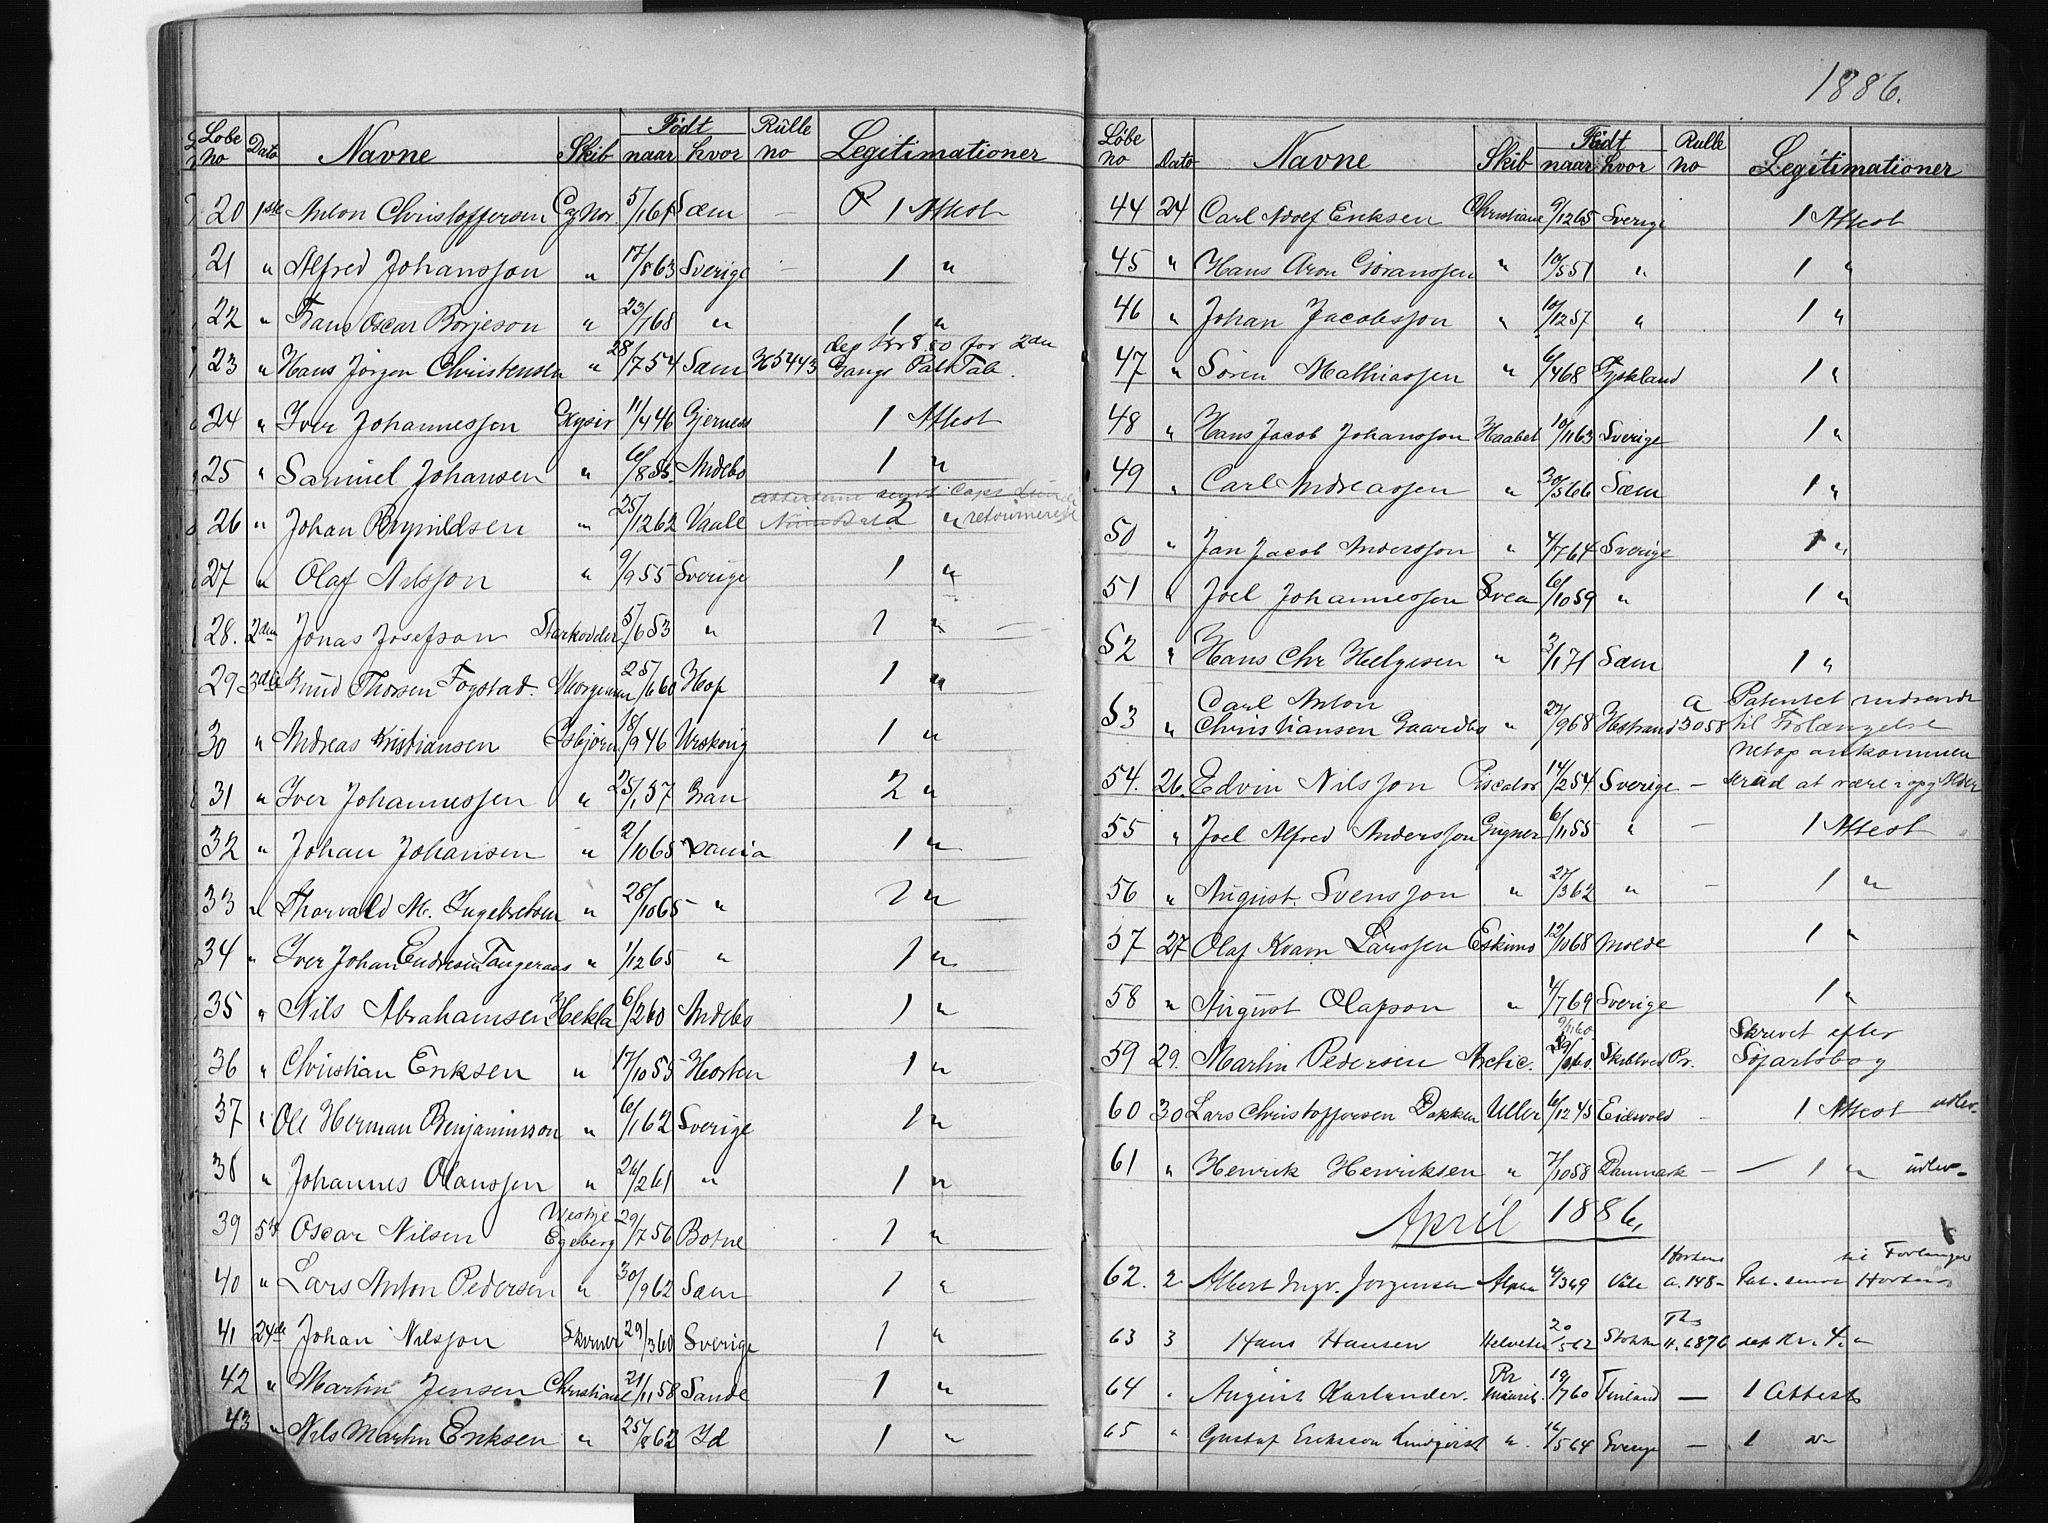 1886.
Løbe no Dato Navne Skib Født naar hvor Rülle no Legitimationer
20 1ste Anton Christoffersen Cap Nor 5/1 61 Sæm — P 1 Attest
21 " Alfred Johansson " 17/8 63 Sverige — 1 "
22 " Frans Oscar Børjeson " 23/7 68 " 1 "
23 " Hans Jörgen Christensen " 28/7 54 Sæm H5443 dep Kr 8.50 for 2den
Gangs Pat Tab.
24 " Iver Johannessen Geysir 11/4 46 Gjernes 1 Attest
25 " Samuel Johansen " 6/8 55 Andebo 1 "
26 " Johan Reynildsen " 25/12 62 Vaale 2 " retourneret
27 " Olaf Nilsson " 9/9 55 Sverige 1 "
28. 2den Jonas Josefson Starkodder 5/6 53 " 1 " —
29 3die Knud Thorsen Fogstad. Morgenen 25/6 60 Hof 1 "
30 " Andreas Kristiansen Isbjørn 18/9 46 Urskoug 1 "
31 " Iver Johannessen " 25/1 57 Gran 2 "
32 " Johan Johansen " 2/10 65 1 "
33 " Thorvald M. Ingebretsen " 28/10 65 " 2 "
34 " Iver Johan Endresen Tangeraas " 1/12 65 " 1 "
35 " Nils Abrahamsen Hekla 6/2 60 Andebo 1 "
36 " Christian Eriksen " 17/10 55 Horten 1 "
37 " Ole Herman Benjaminsson " 6/1 62 Sverige 1 "
38 " Johannes Olaussen " 26/2 61 " 1 "
39 5te Oscar Nilsen Westye Egeberg 29/7 56 Botne 1 "
40 " Lars Anton Pedersen " 30/9 62 Sæm 1 "
41 24de Johan Nilsson Skirner 29/3 60 Sverige 1 "
42 " Martin Jensen Christiane 21/11 58 Sande 1 "
43 " Nils Martin Eriksen " 25/8 62 Id 1 "
Løbe no Dato Navne Skib Født naar hvor Rulle no Legitimationer
44 24 Carl Adolf Eriksen Christiane 9/12 65 Sverige 1 Attest
45 " Hans Aron Gøranssen " 10/5 51 " 1 "
46 " Johan Jacobsson " 10/12 57 " 1 "
47 " Søren Mathiassen " 6/4 68 Tyskland 1 "
48 " Hans Jacob Johansson Haabet 10/11 63 Sverige 1 "
49 " Carl Andreassen " 30/5 66 Sæm 1 "
50 " Jan Jacob Andersson " 4/7 64 Sverige 1 "
51 " Joel Johannessen Svea 6/10 59 " 1 "
52 " Hans Chr Helgesen " 3/1 71 Sæm 1 "
53 " Carl Anton Christiansen Gaardbo " 27/9 68 Hestrand a 3058 Patentet indsendt
til Forlængelse
netop ankommen
54. 26. Edvin Nilsson Piscator 14/2 54 Sverige —
55 " Joel Alfred Andersson Gugner 6/11 55 " — 1 Attest
56 " August Svensson " 27/3 62 " — 1 "
57 27 Olaf Kvam Larssen Eskimo 12/1 68 Molde 1 "
58 " August Olafson " 4/7 69 Sverige 1 "
59 29. Martin Pedersen Arctic. 9/11 60 Skiptved Pr. Skrevet efter
Søfartsbog
60 30 Lars Christoffersen Dokken Uller 6/12 45 Eidsvold — 1 Attest udlev.
61 " Henrik Henriksen " 7/10 58 Danmark — 1 " udlev-
April 1886,
62. 2 Albert Ingv. Jørgensen Alpha 4/3 49 Vale Hortens a. 148- Pat. til Forlænger Horten
63 3 Hans Hansen Helvetia 20/5 62 Stokke H. 6876 dep Kr. 4.-
64 " August Karlander. 19/7 60 Finland — 1 Attest
65 " Gustaf Eriksson Lindqvist " 16/5 64 Sverige — 1 "